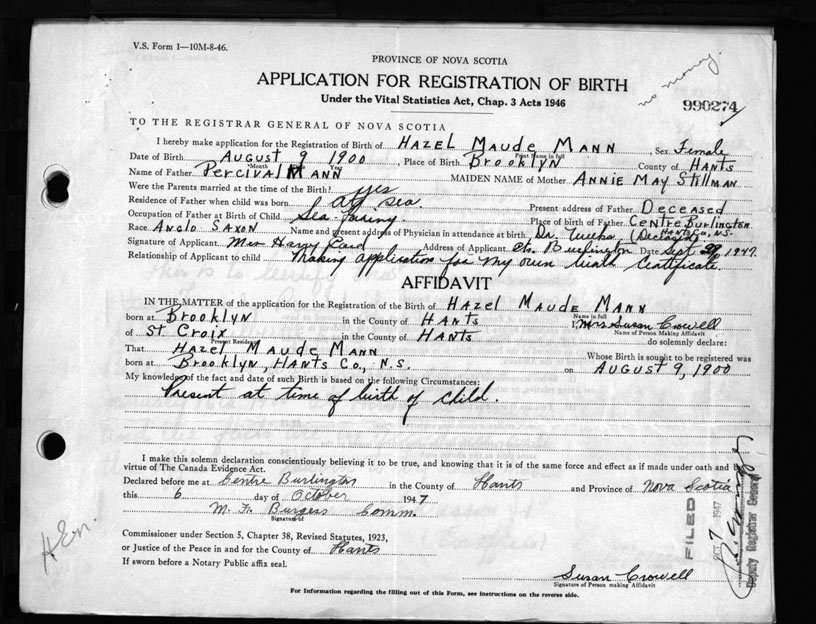 V.S. Form 1—10M-8-46.
PROVINCE OF NOVA SCOTIA
APPLICATION FOR REGISTRATION OF BIRTH
no money.
Under the Vital Statistics Act, Chap. 3 Acts 1946
990274
TO THE REGISTRAR GENERAL OF NOVA SCOTIA
I hereby make application for the Registration of Birth of HAZEL MAUDE MANN, Sex Female
Print Name in full
Date of Birth AUGUST 9 1900, Place of Birth BROOKLYN County of HANTS
Month
Name of Father PERCIVAL MANN MAIDEN NAME of Mother ANNIE MAY STILLMAN
Were the Parents married at the time of the Birth? yes
Residence of Father when child was born at sea Present address of Father DECEASED
Occupation of Father at Birth of Child Sea Faring Place of birth of Father CENTRE BURLINGTON
HANTS Co., N.S.
Race ANGLO SAXON Name and present address of Physician in attendance at birth Dr. (Deceased)
Signature of Applicant Mrs Harry Card Address of Applicant Ctr. Burlington Date Sept 29 1947.
Relationship of Applicant to child making application for my own birth certificate.
AFFIDAVIT
IN THE MATTER of the application for the Registration of the Birth of HAZEL MAUDE MANN
Name in full
born at BROOKLYN in the County of HANTS I, Mrs Susan Crowell
Name of Person Making Affidavit
of ST CROIX in the County of HANTS do solemnly declare:
Present Residence
That HAZEL MAUDE MANN Whose Birth is sought to be registered was
born at BROOKLYN, HANTS CO., N.S. on AUGUST 9, 1900
My knowledge of the fact and date of such Birth is based on the following Circumstances:
Present at time of birth of child.
I make this solemn declaration conscientiously believing it to be true, and knowing that it is of the same force and effect as if made under oath and by
virtue of The Canada Evidence Act.
Declared before me at Centre Burlington in the County of Hants and Province of Nova Scotia
this 6 day of October 1947
M. Fr. Burgess Comm.
Signature of
Commissioner under Section 5, Chapter 38, Revised Statutes, 1923,
or Justice of the Peace in and for the County of Hants
If sworn before a Notary Public affix seal.
Susan Crowell
Signature of Person making Affidavit
For Information regarding the filling out of this Form, see instructions on the reverse side.
FILED
OCT 7 1947
Deputy Registrar General